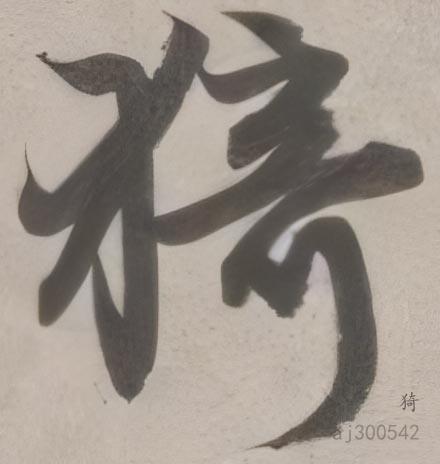 猗
猗
aj300542